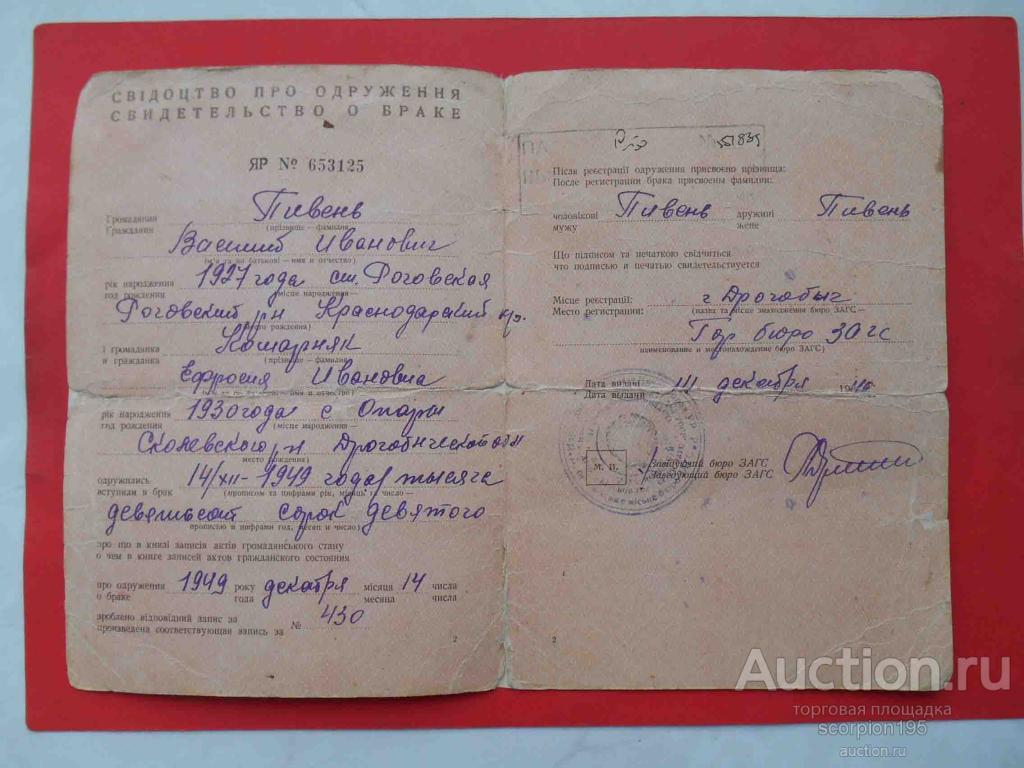 СВІДОЦТВО ПРО ОДРУЖЕННЯ
СВИДЕТЕЛЬСТВО О БРАКЕ
ЯР № 653125
Громадянин Пивень
Гражданин (прізвище – фамилия)
Василий Иванович
(ім'я та по батькові – имя и отчество)
рік народження 1927 года ст. Роговская
год рождения (місце народження –
Роговский р/н Краснодарский кр.
место рождения)
і громадянка Кошарняк
и гражданка (прізвище – фамилия)
Ефросия Ивановна
рік народження 1930 года с Опары
год рождения (місце народження –
Сколевского р/н Дрогобической обл
место рождения)
одружились 14/XII - 1949 года тысяча
вступили в брак (прописом та цифрами рік, місяць та число –
девятьсот сорок девятого
прописью и цифрами год, месяц и число)
про що в книзі записів актів громадянського стану
о чем в книге записей актов гражданского состояния
про одруження 1949 року декабря місяця 14 числа
о браке года месяца числа
зроблено відповідний запис за № 430
произведена соответствующая запись за
2
Після реєстрації одруження присвоєно прізвища:
После регистрации брака присвоены фамилии:
чоловікові Пивень дружині Пивень
мужу жене
Що підписом та печаткою свідчиться
что подписью и печатью свидетельствуется
Місце реєстрації: г Дрогобыч
Место регистрации: (назва та місце знаходження бюро ЗАГС –
Гор бюро ЗАГС
наименование и местонахождение бюро ЗАГС)
Дата видачі декабря
Дата выдачи
М. П.
Завідуючий бюро ЗАГС
Заведующий бюро ЗАГС
2
Auction.ru
торговая площадка
scorpion195
auction.ru